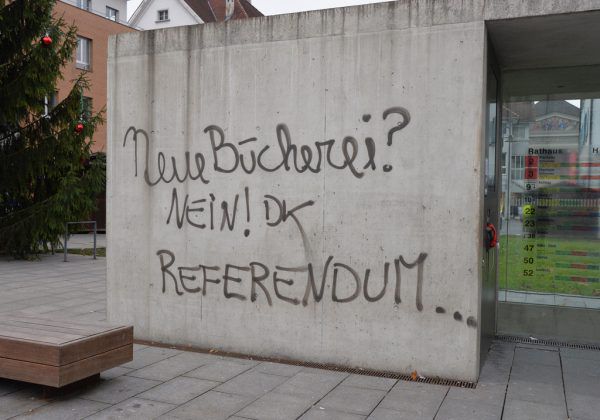 Neue Bücherei?
NEIN! DK
REFERENDUM...
Rathaus
H
9
22
23
38
47
50
52